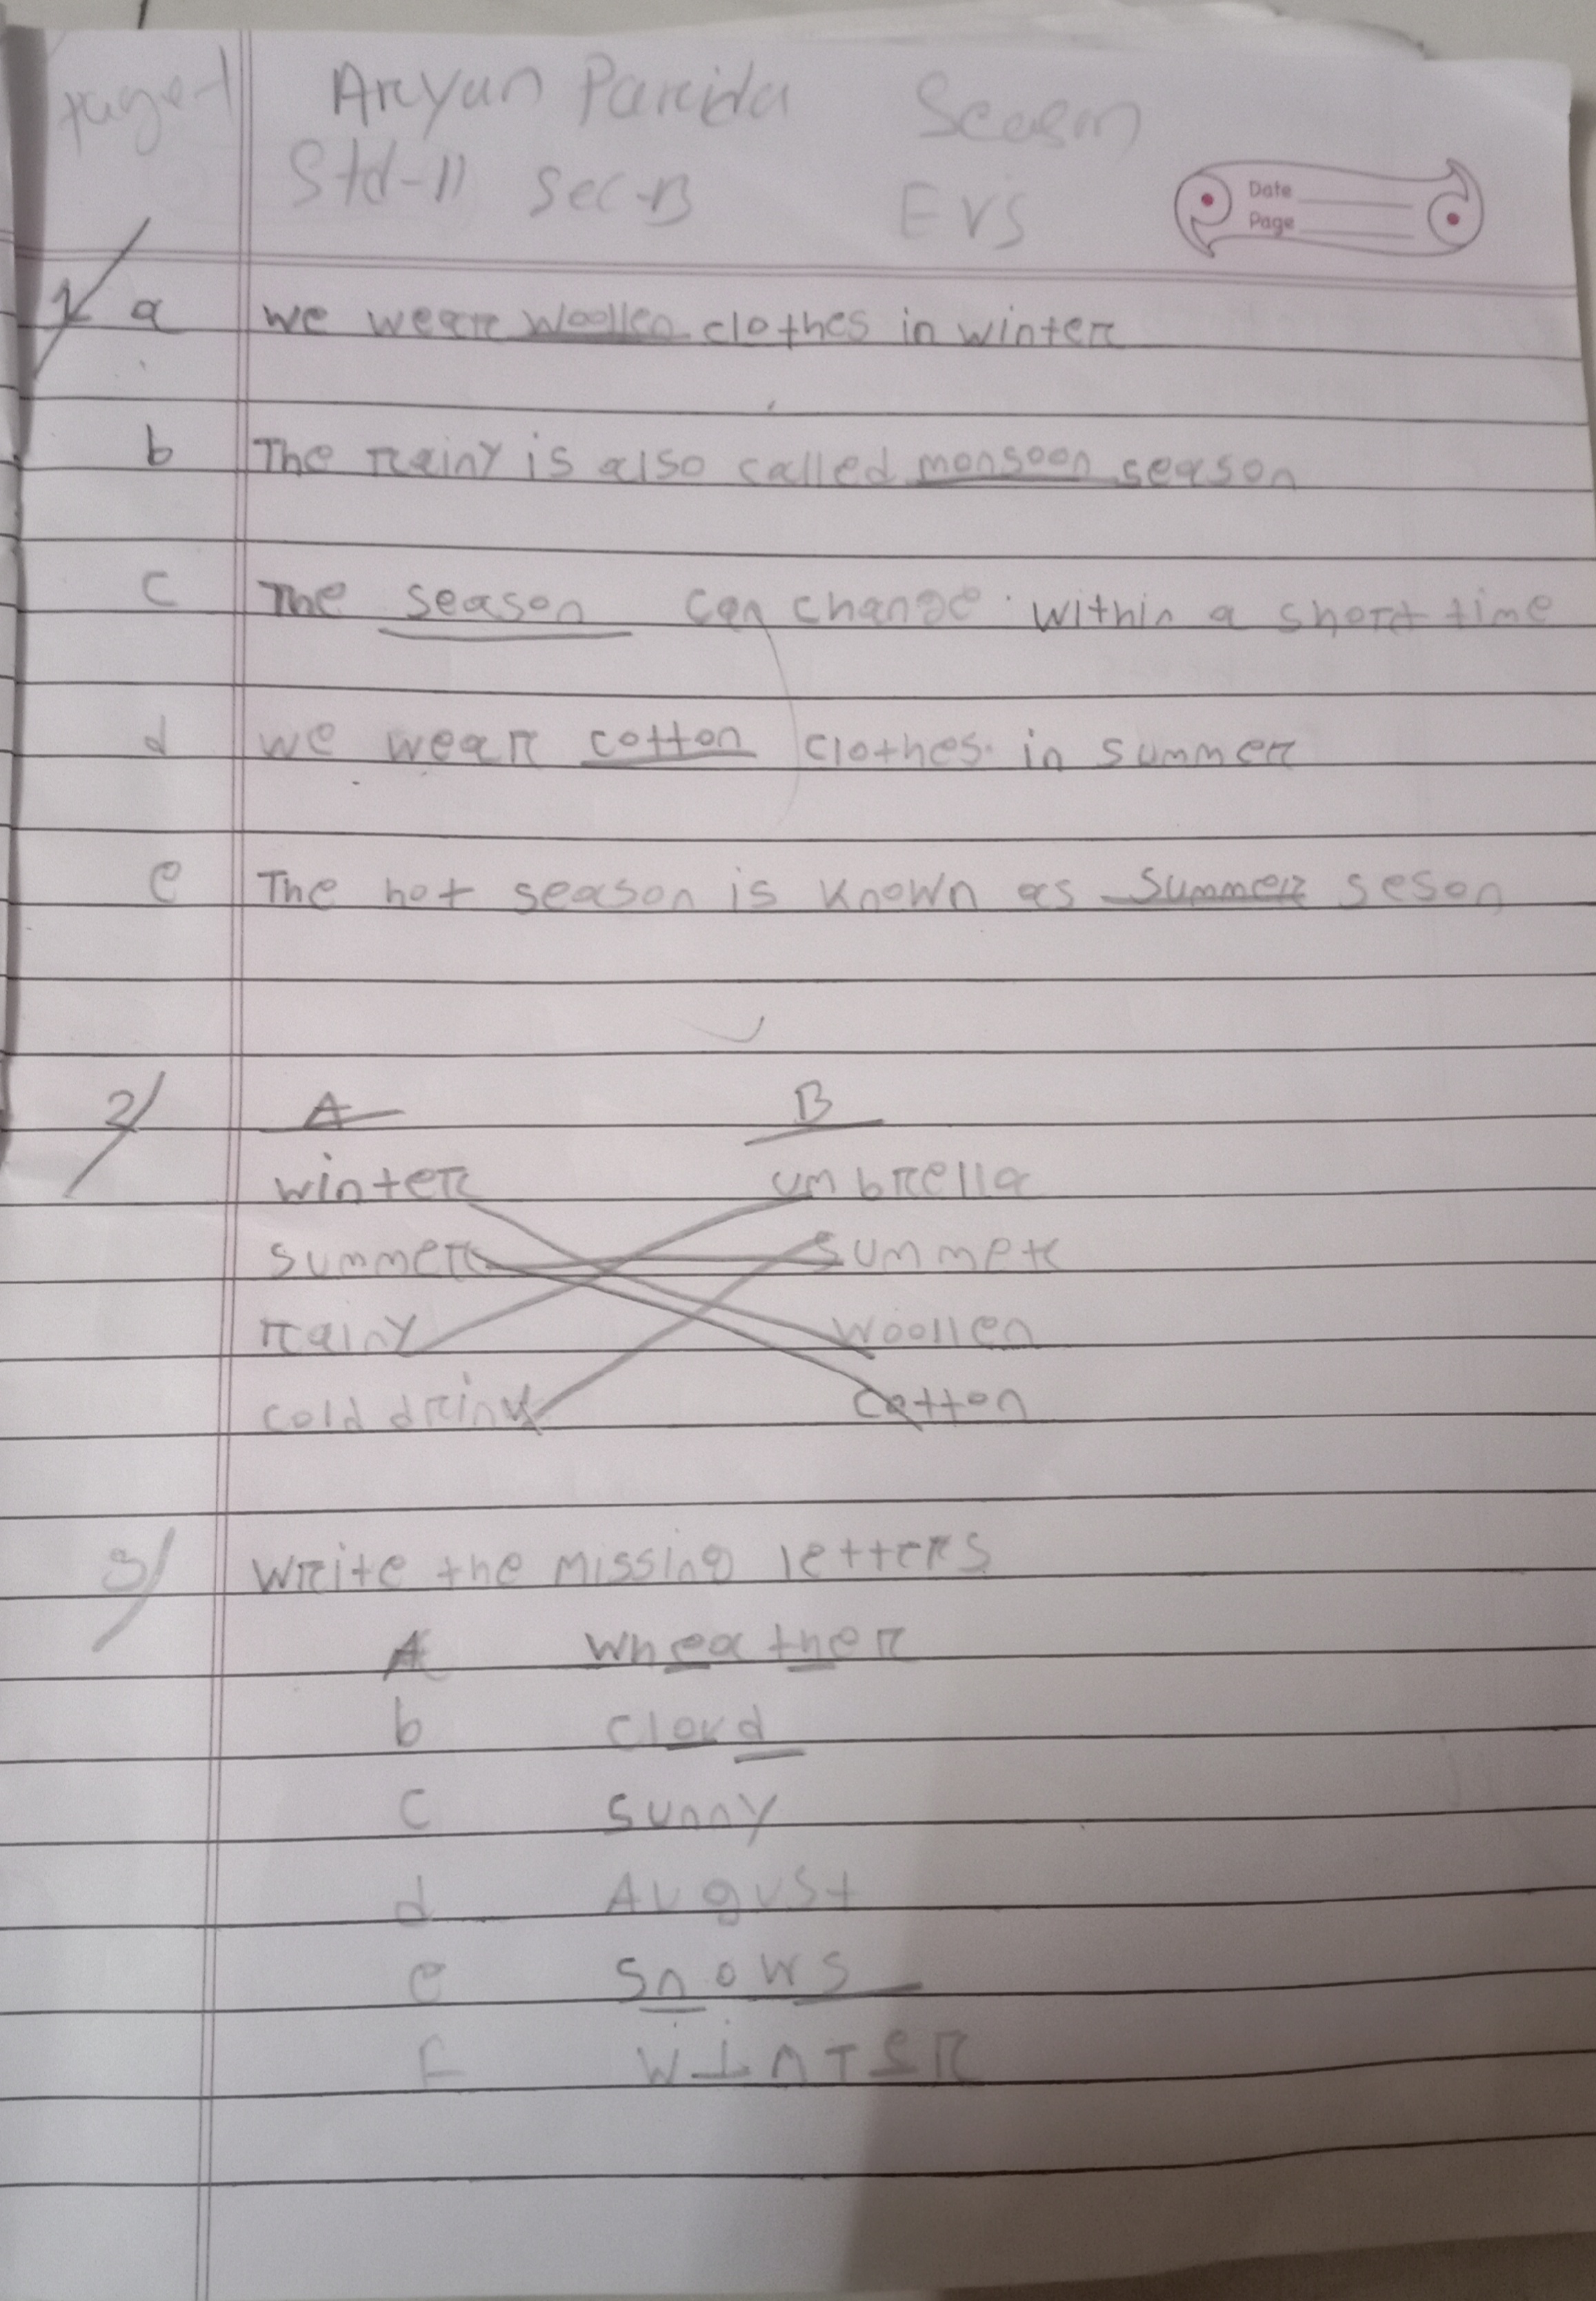 page-1 Aryan Parida Season
Std-II Sec-B EVS
Date
Page
1/ a we wear woollen clothes in winter
b The rainy is also called monsoon season
c The season can change within a short time
d we wear cotton clothes in summer
e The hot season is known as summer seson
2/ A B
winter umbrella
summer summer
rainy woollen
cold drink cotton
3/ write the missing letters
A wheather
b cloud
c sunny
d August
e snows
F WINTER